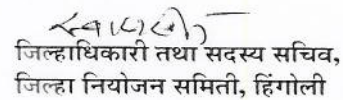 स्वाक्षरी/-
जिल्हाधिकारी तथा सदस्य सचिव,
जिल्हा नियोजन समिती, हिंगोली